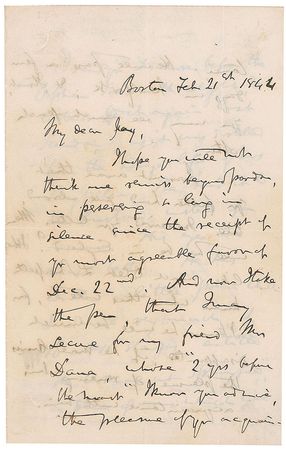 Boston Feb 21st 1842
My dear Jay,
I hope you will not
think me remiss beyond pardon,
in preserving so long in
silence since the receipt of
yr most agreeable favor of
Dec. 22nd. And now I take
the pen, that I may
secure for my friend Mr
Dana, whose "2 yrs before
the mast" I know you admire,
the pleasure of yr acquain-